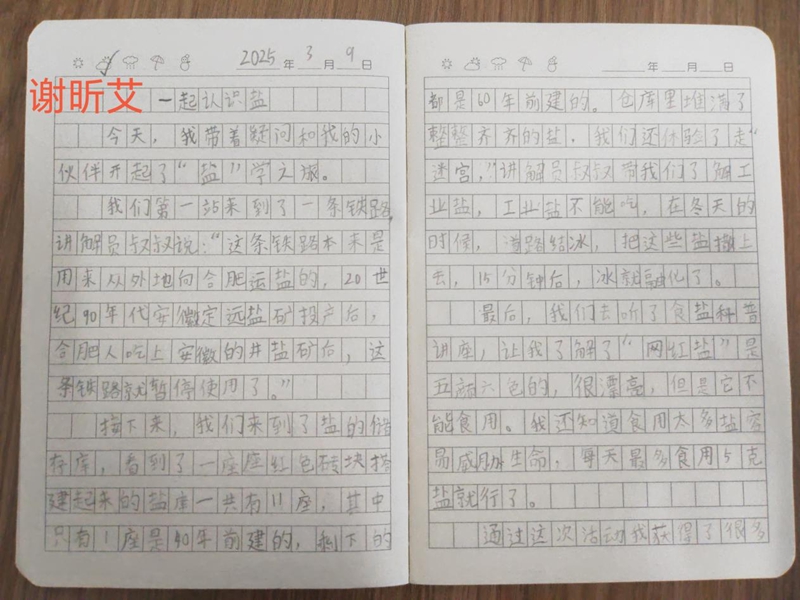 2025年3月9日
谢昕艾
一起认识盐
今天，我带着疑问和我的小
伙伴开起了“盐”学之旅。
我们第一站来到了一条铁路，
讲解员叔叔说：“这条铁路本来是
用来从外地向合肥运盐的，20世
纪90年代安徽定远盐矿投产后，
合肥人吃上安徽的井盐矿后，这
条铁路就暂停使用了。”
接下来，我们来到了盐的储
存库，看到了一座座红色砖块搭
建起来的盐库一共有11座，其中
只有1座是40年前建的，剩下的
年 月 日
都是60年前建的。仓库里堆满了
整整齐齐的盐，我们还体验了走“
迷宫，”讲解员叔叔带我们了解工
业盐，工业盐不能吃，在冬天的
时候，道路结冰，把这些盐撒上
去，15分钟后，冰就融化了。
最后，我们去听了食盐科普
讲座，让我了解了“网红盐”是
五颜六色的，很漂亮，但是它不
能食用。我还知道食用太多盐容
易威胁生命，每天最多食用5克
盐就行了。
通过这次活动我获得了很多